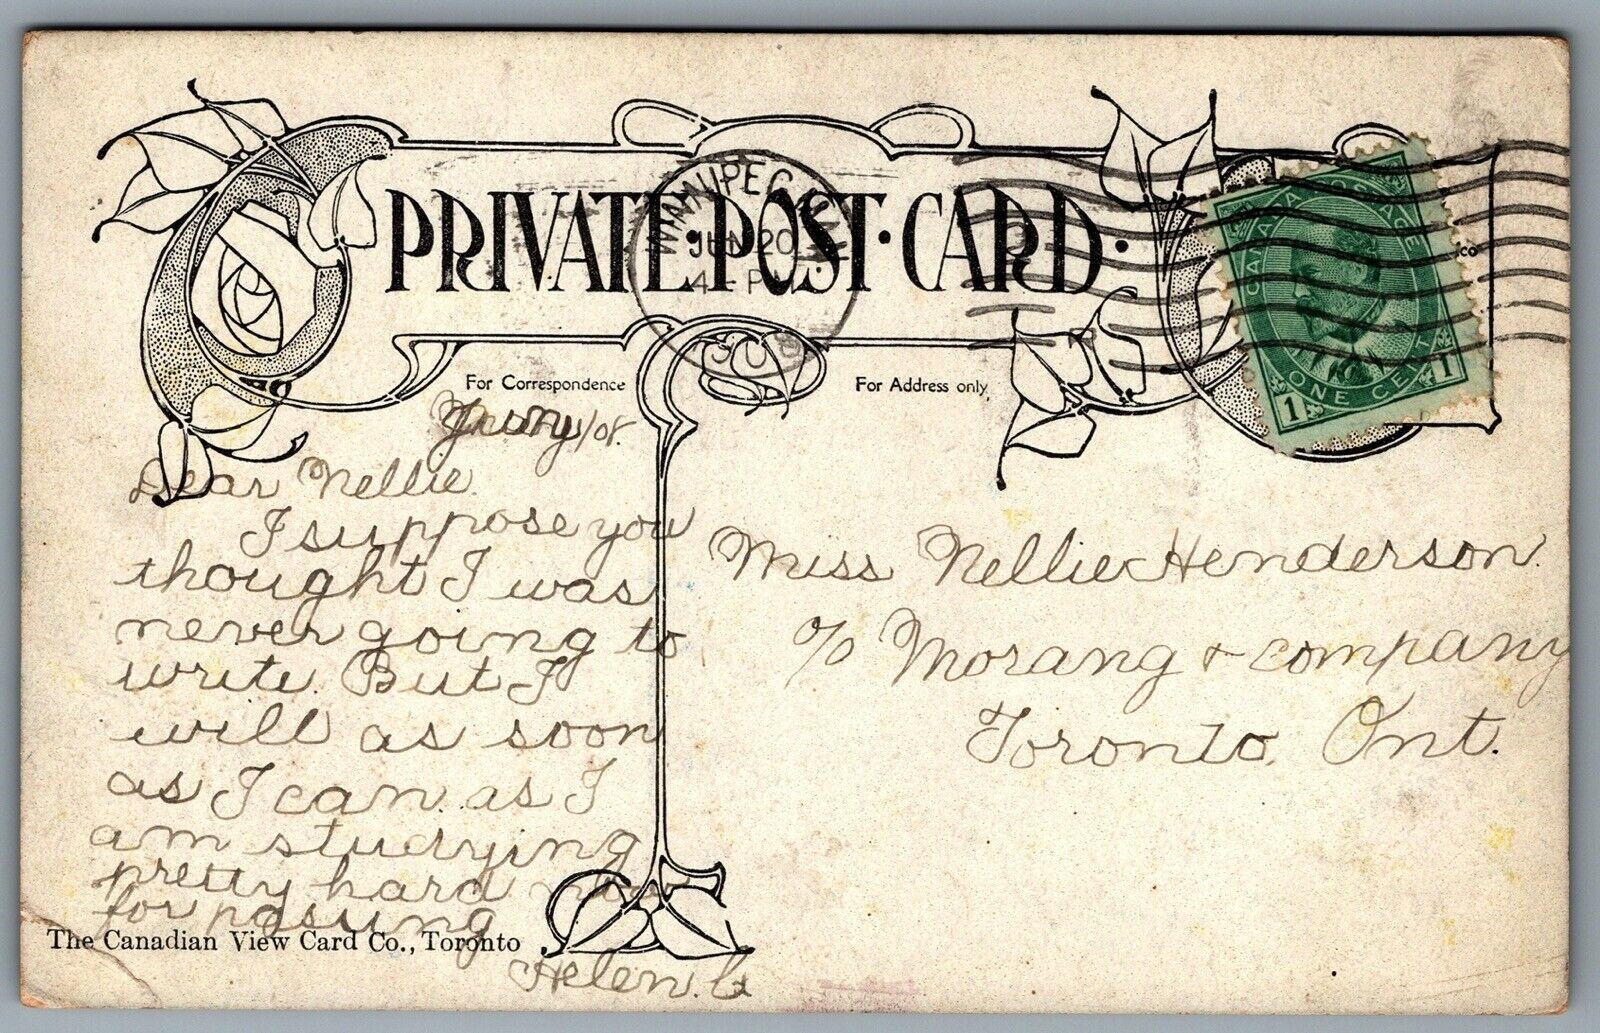 PRIVATE·POST·CARD·
JUN 20
4 - PM
CANADA POSTAGE
ONE CENT
1 1
For Correspondence
For Address only.
/08.
Dear Nellie.
I suppose you
thought I was
never going to
write. But I
will as soon
as I can. as I
am studying
pretty hard now
for passing
Helen. G
Miss Nellie Henderson.
c/o Morang & company
Toronto, Ont.
The Canadian View Card Co., Toronto